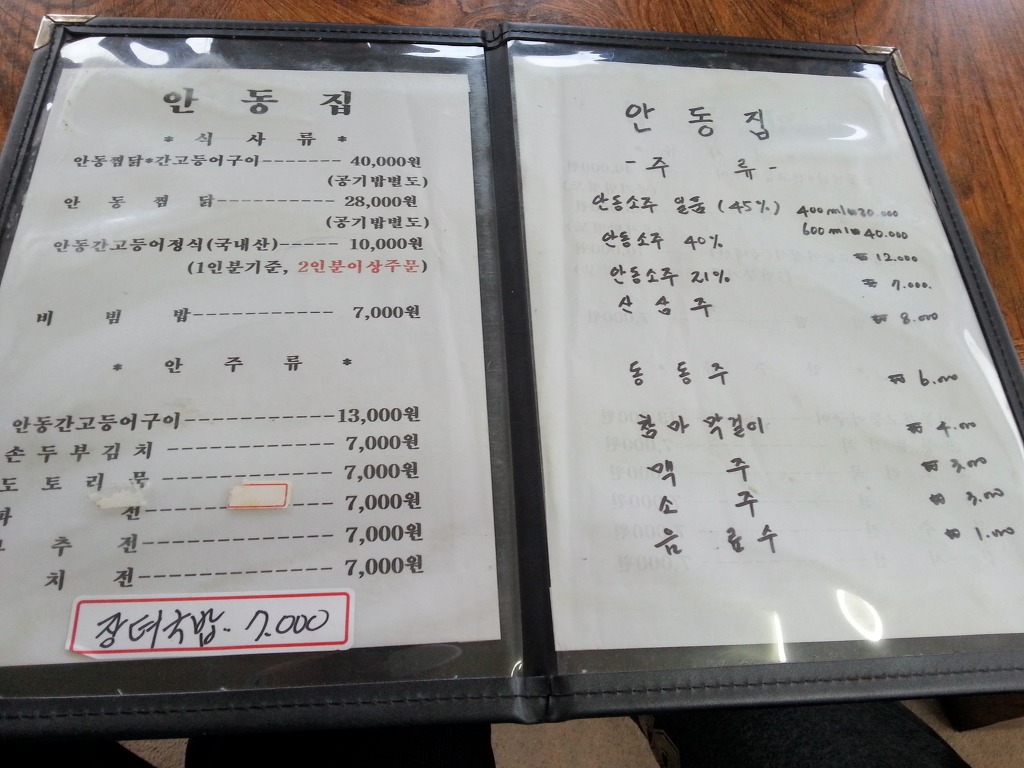 안 동 집
* 식 사 류 *
안동찜닭*간고등어구이------- 40,000원
(공기밥별도)
안 동 찜 닭---------- 28,000원
(공기밥별도)
안동간고등어정식(국내산)----- 10,000원
(1인분기준, 2인분이상주문)
비 빔 밥------------ 7,000원
* 안 주 류 *
안동간고등어구이------------13,000원
손두부김치 ------------- 7,000원
도토리묵-------------- 7,000원
파 전-------------- 7,000원
추 전-------------- 7,000원
치 전-------------- 7,000원
장터국밥. 7.000
안 동 집
- 주 류 -
안동소주 일품 (45%) 400ml ₩20.000
600ml ₩40.000
안동소주 40% ₩12.000
안동소주 21% ₩7.000.
산삼주 ₩8.000
동동주 ₩6.000
참마막걸이 ₩4.000
맥 주 ₩3.000
소 주 ₩3.000
음 료수 ₩1.000